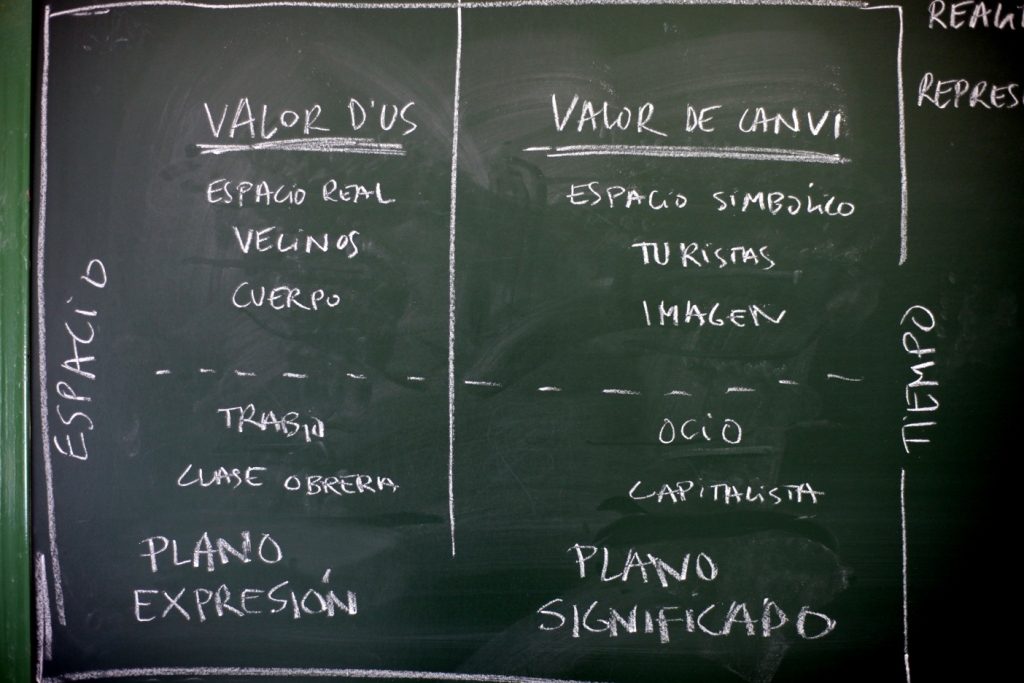 VALOR D'US
ESPACIO REAL
VECINOS
CUERPO
TRABJO
CLASE OBRERA
PLANO
EXPRESIÓN
VALOR DE CANVI
ESPACIO SIMBÓLICO
TURISTAS
IMAGEN
OCIO
CAPITALISTA
PLANO
SIGNIFICADO
ESPACIO
TIEMPO
REALI
REPRES